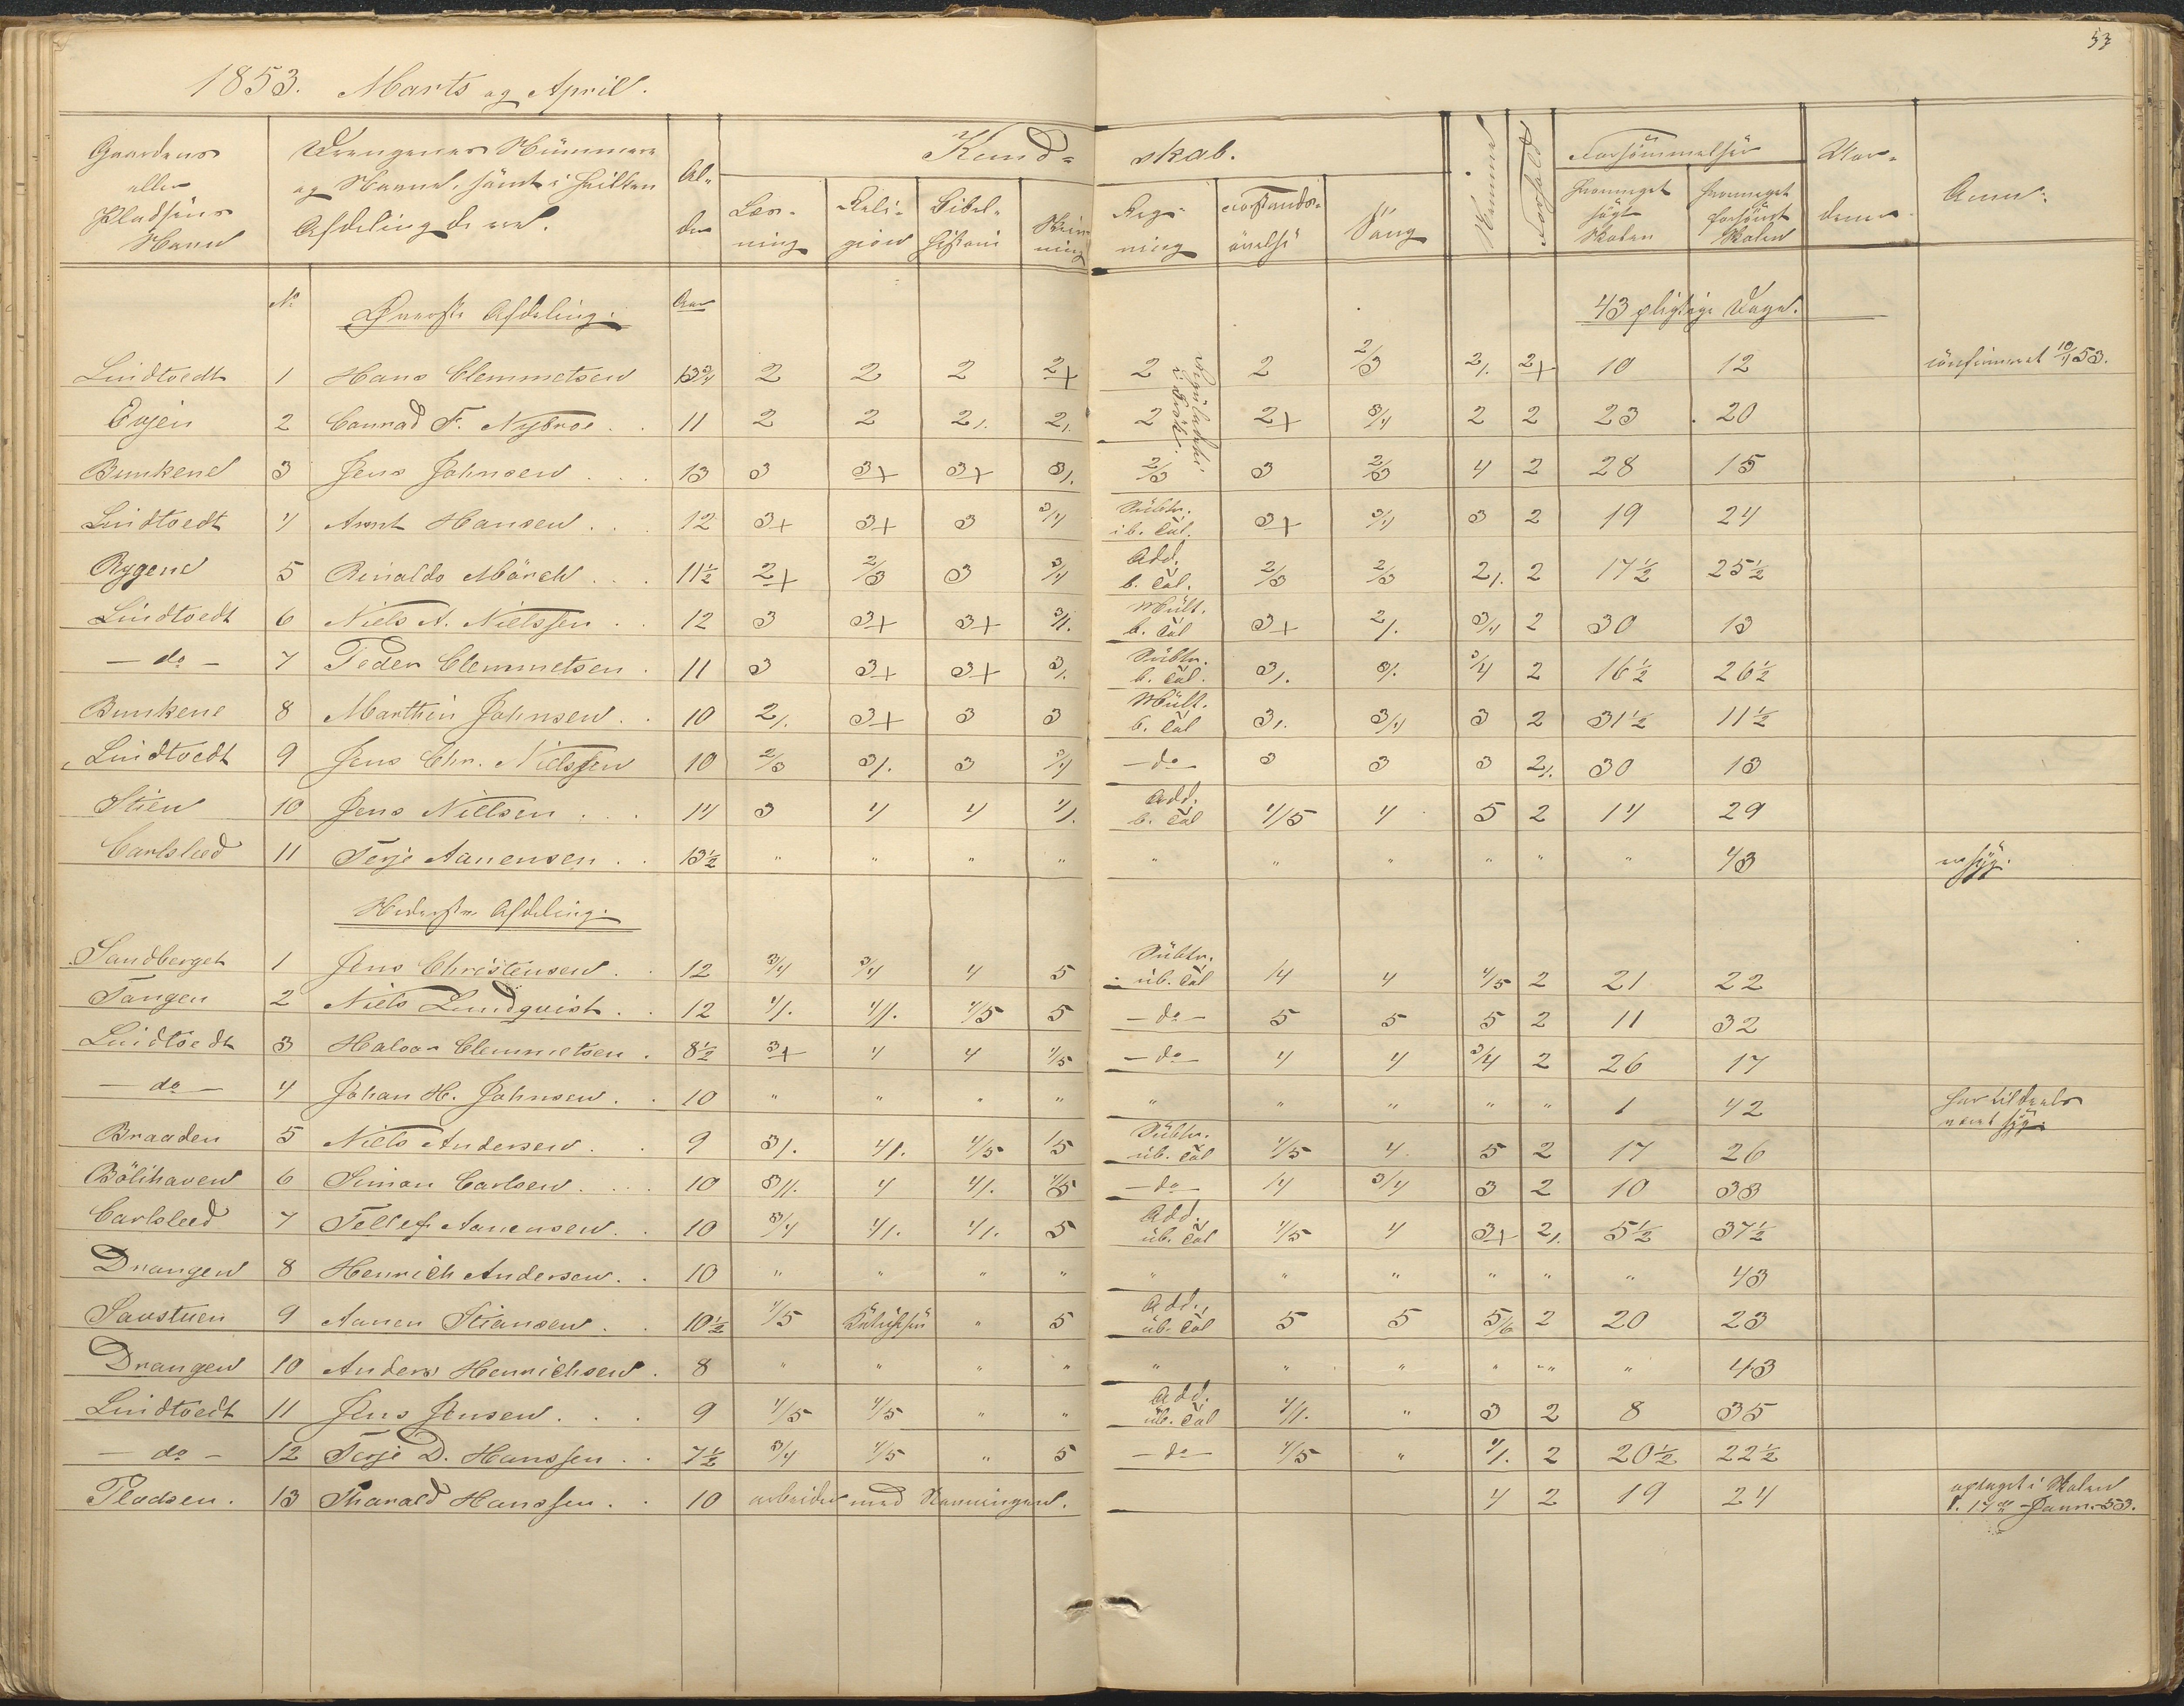 53
1853. Marts og April.
Gaardens eller Pladsens Navn
Drengenes Nummere og Navne, samt i hvilken Afdeling de ere.
Alder
Kundskab.
Læsning
Religion
Bibelhistorie
Skrivning
Regning
Forstandsøvelse
Sang
Nemme
Forhold
Forsømmelser
hvormeget søgt Skolen
hvormeget forsømt Skolen
Anm:
No Øverste Afdeling. Aar 43 pligtige Dage.
Lindtvedt 1 Hans Clemmetsen 13 3/4 2 2 2 2+ 2 2 2/3 2/. 2+ 10 12 confirmeret 10/4 53.
Evjen 2 Conrad F. Nybroe 11 2 2 2/. 2/. 2 2+ 3/4 2 2 23 20
Bunkene 3 Jens Johnsen 13 3 3+ 3+ 3/. 2/3 3 2/3 4 2 28 15
Lindtvedt 4 Arent Hansen 12 3+ 3+ 3 3/4 Subtr. i b. Tal. 3+ 3/4 3 2 19 24
Rygene 5 Rinaldo Mörch 11 1/2 2+ 2/3 3 3/4 Add. b. Tal. 2/3 2/3 2/. 2 17 1/2 25 1/2
Lindtvedt 6 Niels A. Nielssen 12 3 3+ 3+ 3/. Mult. b. Tal 3+ 2/. 3/4 2 30 13
— do — 7 Peder Clemmetsen 11 3 3+ 3+ 3/. Subtr. b. Tal. 3/. 3/. 3/4 2 16 1/2 26 1/2
Bunkene 8 Marthin Johnsen 10 2/. 3+ 3 3 Mult. b. Tal 3/. 3/4 3 2 31 1/2 11 1/2
Lindtvedt 9 Jens Chr. Nielssen 10 2/3 3/. 3 3/4 — do — 3 3 3 2/. 30 13
Stien 10 Jens Nielsen 14 3 4 4 4/. Add. b. Tal 4/5 4 5 2 14 29
Carlsleed 11 Terje Aanensen 13 1/2 " " " " " " " " " " 43 er syg.
Nederste Afdeling.
Sandberget 1 Jens Christensen 12 3/4 3/4 4 5 Subtr. ub. Tal 4 4 4/5 2 21 22
Tangen 2 Niels Lundquist 12 4/. 4/. 4/5 5 — do — 5 5 5 2 11 32
Lindtvedt 3 Halvor Clemmetsen 8 1/2 3+ 4 4 4/5 — do — 4 4 3/4 2 26 17
— do — 4 Johan H. Johnsen 10 " " " " " " " " " 1 42 har tildeels været syg.
Braaden 5 Niels Andersen 9 3/. 4/. 4/5 5 Subtr. ub. Tal 4/5 4 5 2 17 26
Bölihaven 6 Simon Carlsen 10 3/. 4 4/. 4/5 — do — 4 3/4 3 2 10 33
Carlsleed 7 Tellef Aanensen 10 3/4 4/. 4/. 5 Add. ub. Tal 4/5 4 3+ 2/. 5 1/2 37 1/2
Drangen 8 Henrich Andersen 10 " " " " " " " " " " 43
Savstuen 9 Aanen Stiansen 10 1/2 4/5 " 5 Add. ub. Tal 5 5 5/6 2 20 23
Drangen 10 Anders Henrichsen 8 " " " " " " " " " " " 43
Lindtvedt 11 Jens Jensen 9 4/5 4/5 " " Add. ub. Tal 4/. " 3 2 8 35
— do — 12 Terje D. Hanssen 7 1/2 3/4 4/5 " 5 — do — 4/5 " 4/. 2 20 1/2 22 1/2
Pladsen. 13 Tharald Hanssen 10 arbeider med Stavningen. 4 2 19 24 optaget i Skolen d. 17de Janr. 53.